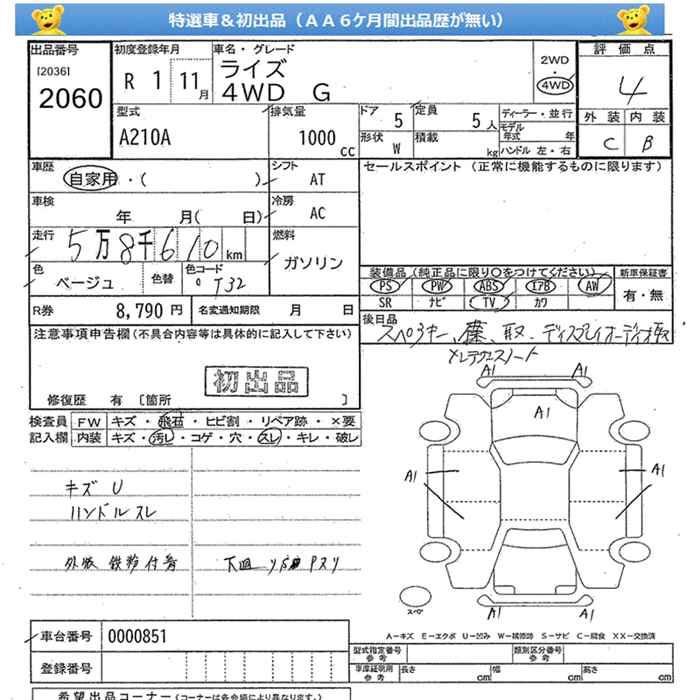 特選車＆初出品（ＡＡ６ケ月間出品歴が無い）
出品番号
[2036]
2060
初度登録年月
R 1 11月
車名・グレード
ライズ
4WD G
2WD
・
4WD
評価点
4
外装 内装
C B
型式
A210A
排気量
1000 cc
ドア 5
定員 5人
形状 W
積載 kg
ディーラー・並行
モデル年式 年
ハンドル 左・右
車歴
自家用・( )
シフト AT
車検
年 月( 日)
冷房 AC
走行
5万8千610km
燃料 ガソリン
色 ベージュ
色替
色コード T32
R券 8,790 円
名変通知期限 月 日
セールスポイント（正常に機能するものに限ります）
装備品（純正品に限り○をつけてください）
PS PW ABS エアB AW
SR ナビ TV カワ
新車保証書
有・無
後日品
スペアキー、
取、ディスプレイオーディオ取
注意事項申告欄(不具合内容等は具体的に記入して下さい)
初出品
修復歴 有 [箇所 ]
検査員記入欄
FW キズ・飛石・ヒビ割・リペア跡・×要
内装 キズ・汚レ・コゲ・穴・スレ・キレ・破レ
キズ U
ハンドルスレ
外板 鉄粉付着
下廻 サビ
A1 A1
A1
A1 A1
A1 A1
スペア
A－キズ E－エクボ U－凹み W－補修跡 S－サビ C－腐食 XX－交換済
車台番号 0000851
登録番号
型式指定番号 参考
類別区分番号 参考
車庫証明用 参考
長さ cm 幅 cm 高さ cm
希望出品コーナー（コーナーは各会場により異なります。）